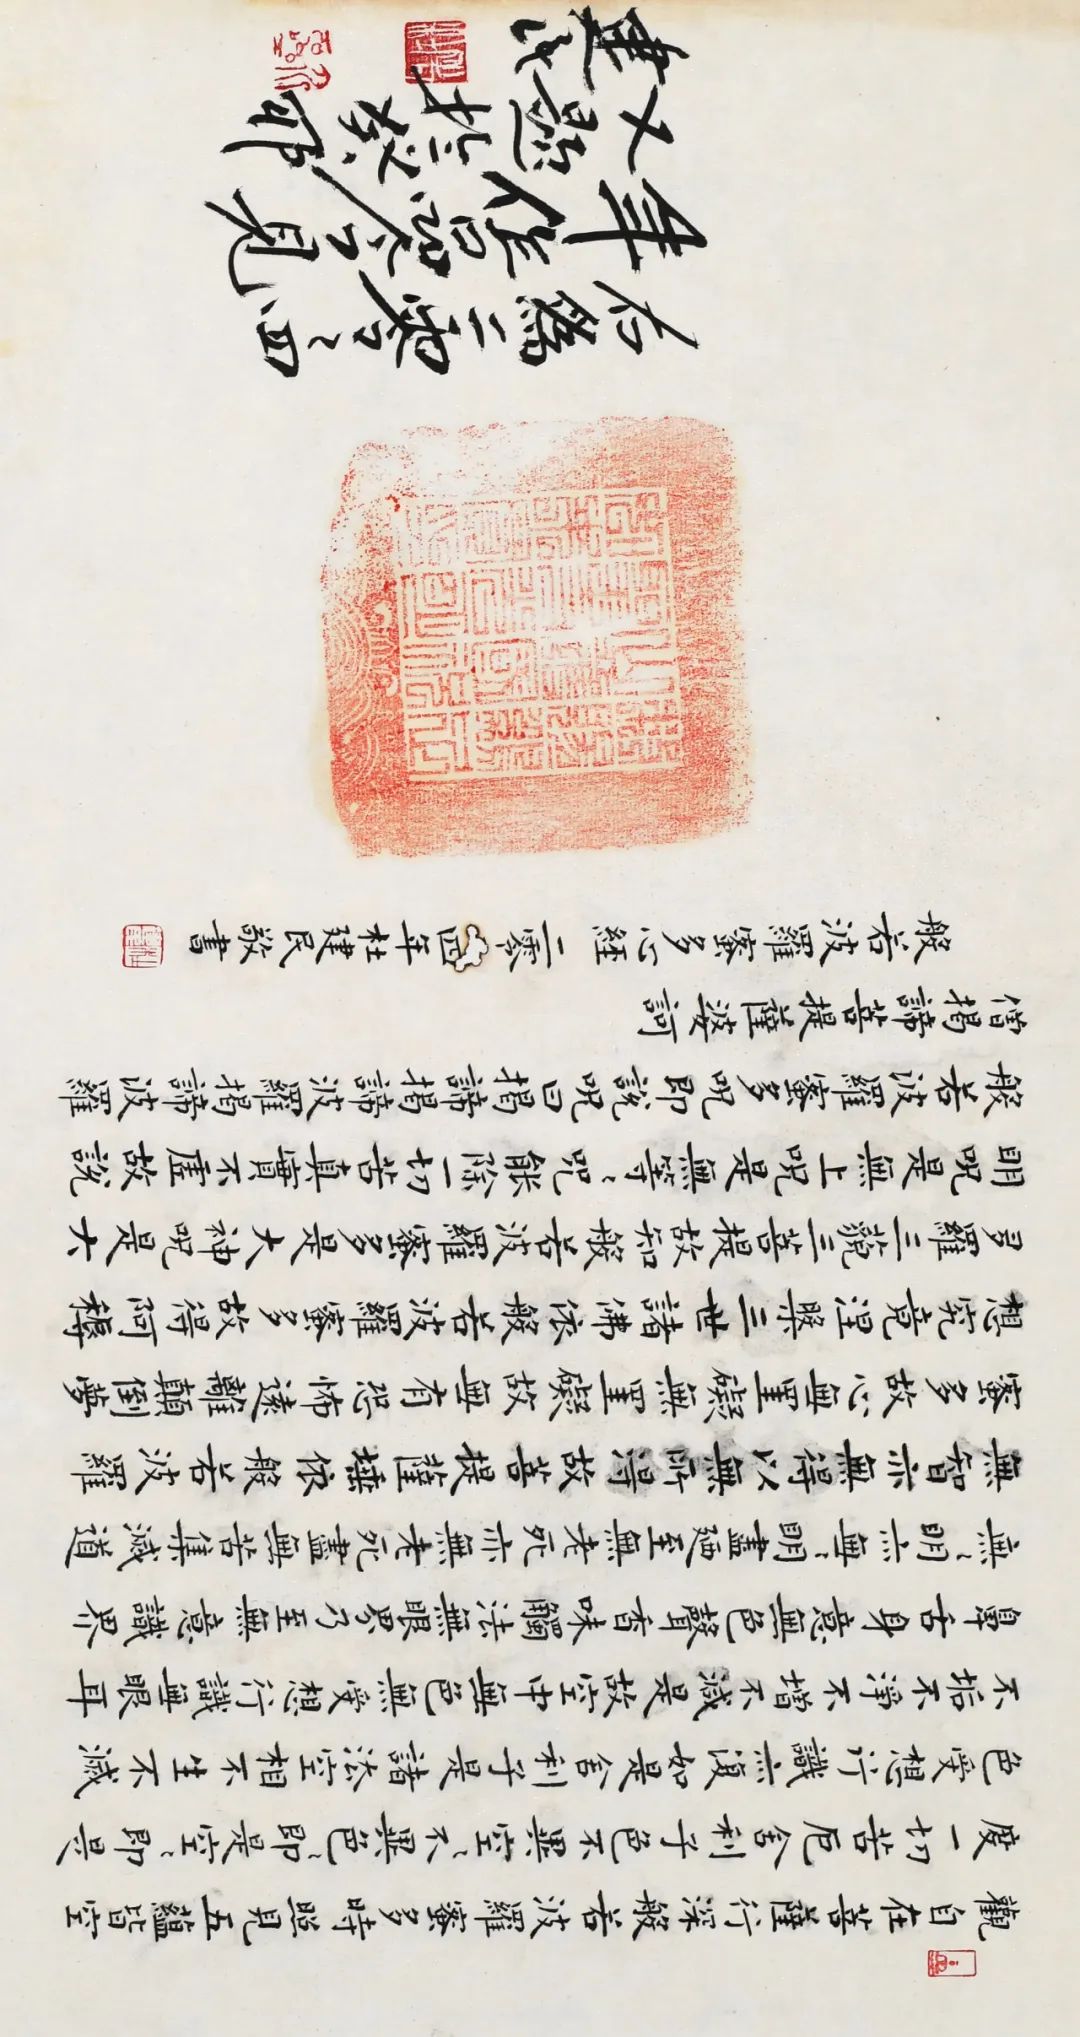 觀自在菩薩行深般若波羅蜜多時照見五蘊皆空
度一切苦厄舍利子色不異空〻不異色〻即是空〻即是
色受想行識亦復如是舍利子是諸法空相不生不滅
不垢不淨不增不減是故空中無色無受想行識無眼耳
鼻舌身意無色聲香味觸法無眼界乃至無意識界
無〻明亦無〻明盡廼至無老死亦無老死盡無苦集滅道
無智亦無得以無所得故菩提薩埵依般若波羅
蜜多故心無罣礙無罣礙故無有恐怖遠離顛倒夢
想究竟涅槃三世諸佛依般若波羅蜜多故得阿耨
多羅三藐三菩提故知般若波羅蜜多是大神呪是大
明呪是無上呪是無等〻呪能除一切苦真實不虛故說
般若波羅蜜多呪即說呪曰揭諦揭諦波羅揭諦波羅
僧揭諦菩提薩婆訶
般若波羅蜜多心経 二零四年杜建民敬書
右為二零〻四
年
又題於
建民